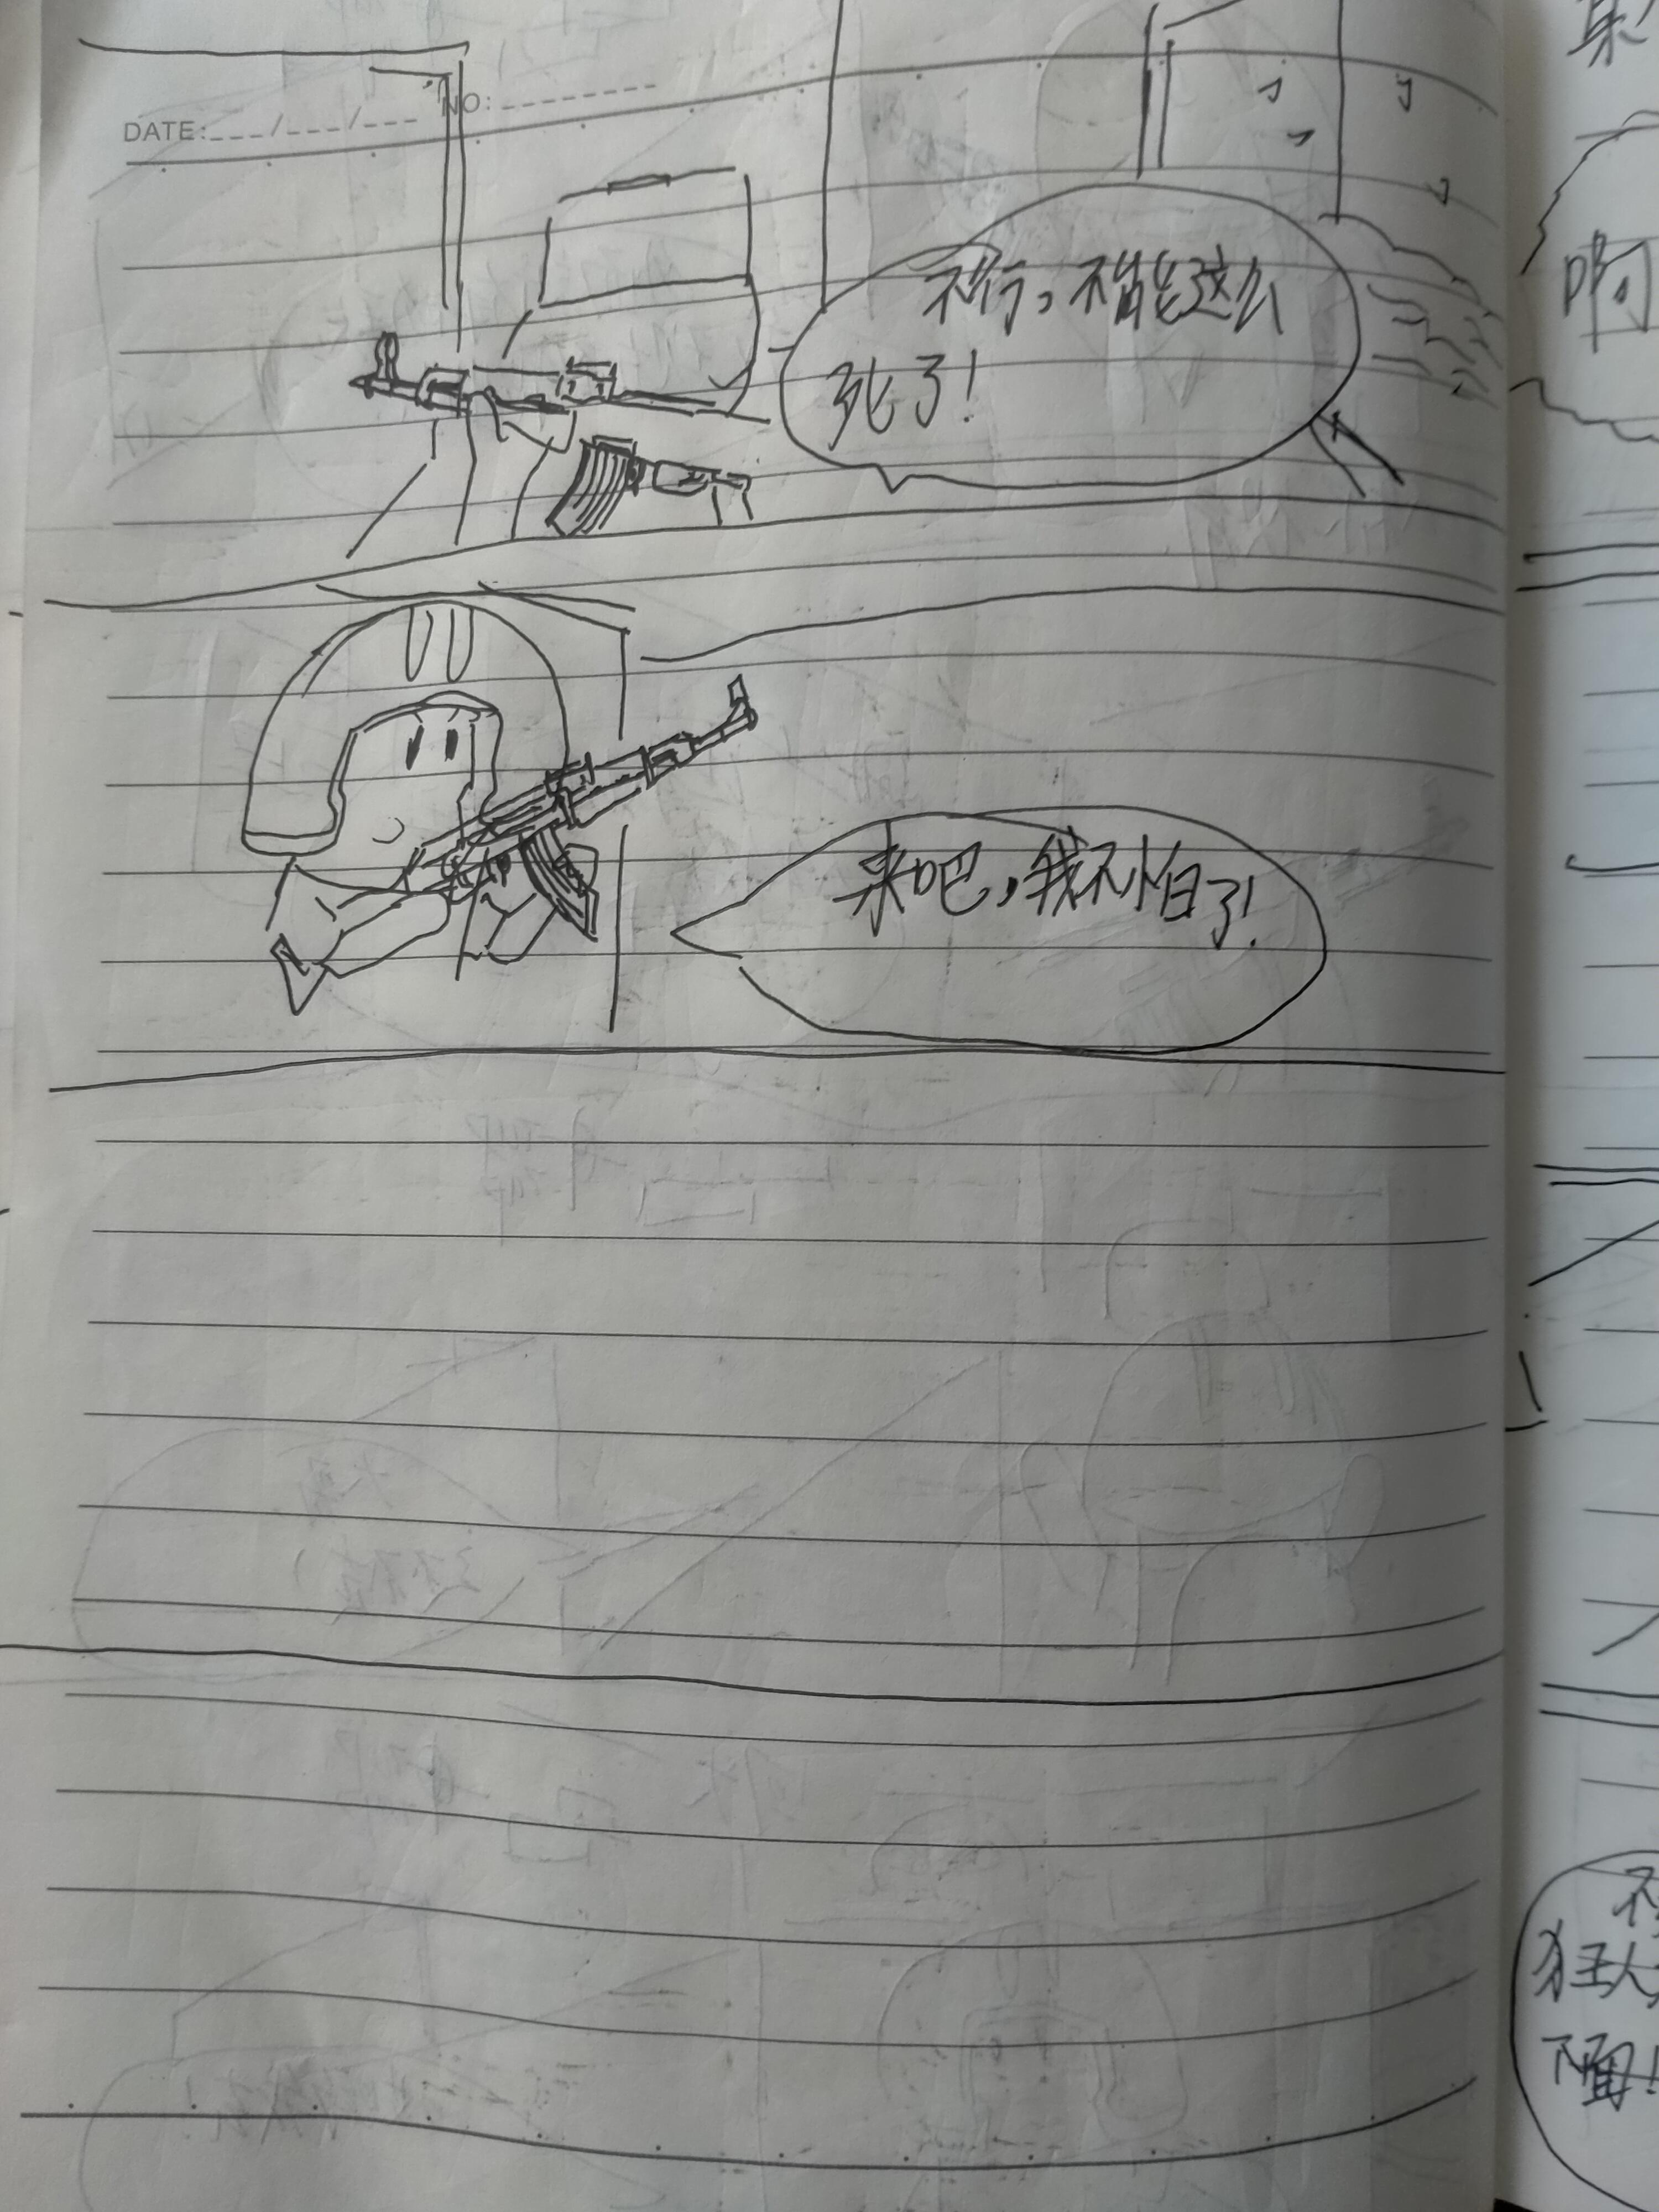 DATE:___/___/___ NO:________
不行，不能这么
死了！
来吧，我不怕了！
啊
狂人
下面！